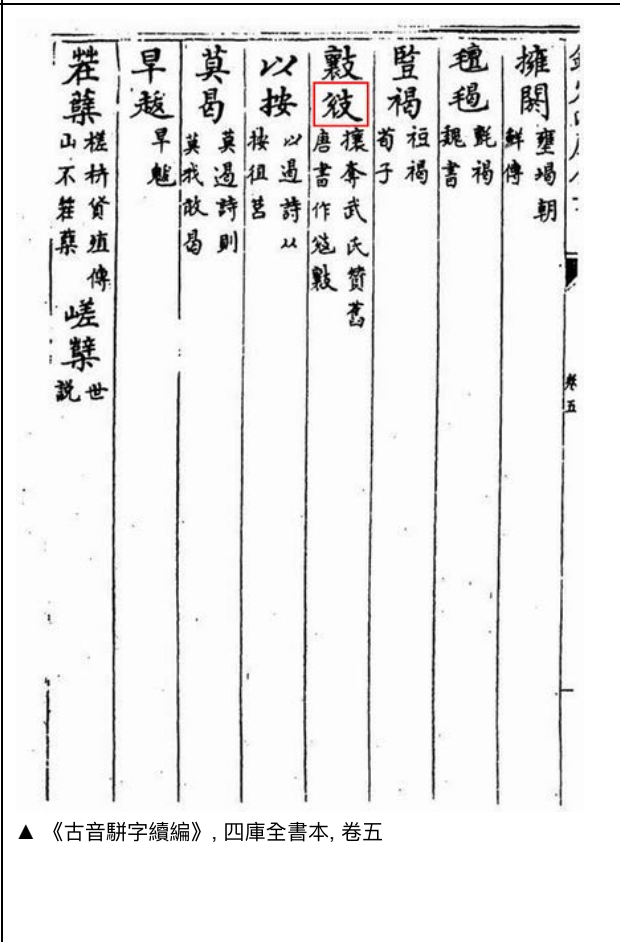 卷五
擁閼 壅堨朝鮮傳
毼 氈褐魏書
豎褐 裋褐荀子
攘奪武氏贊舊唐書作
以按 以遏詩以按徂莒
莫曷 莫遏詩則莫我敢曷
旱 旱魃
茬蘖 槎枿貨殖傳山不茬蘖 嵯櫱 世説
▲ 《古音駢字續編》, 四庫全書本, 卷五